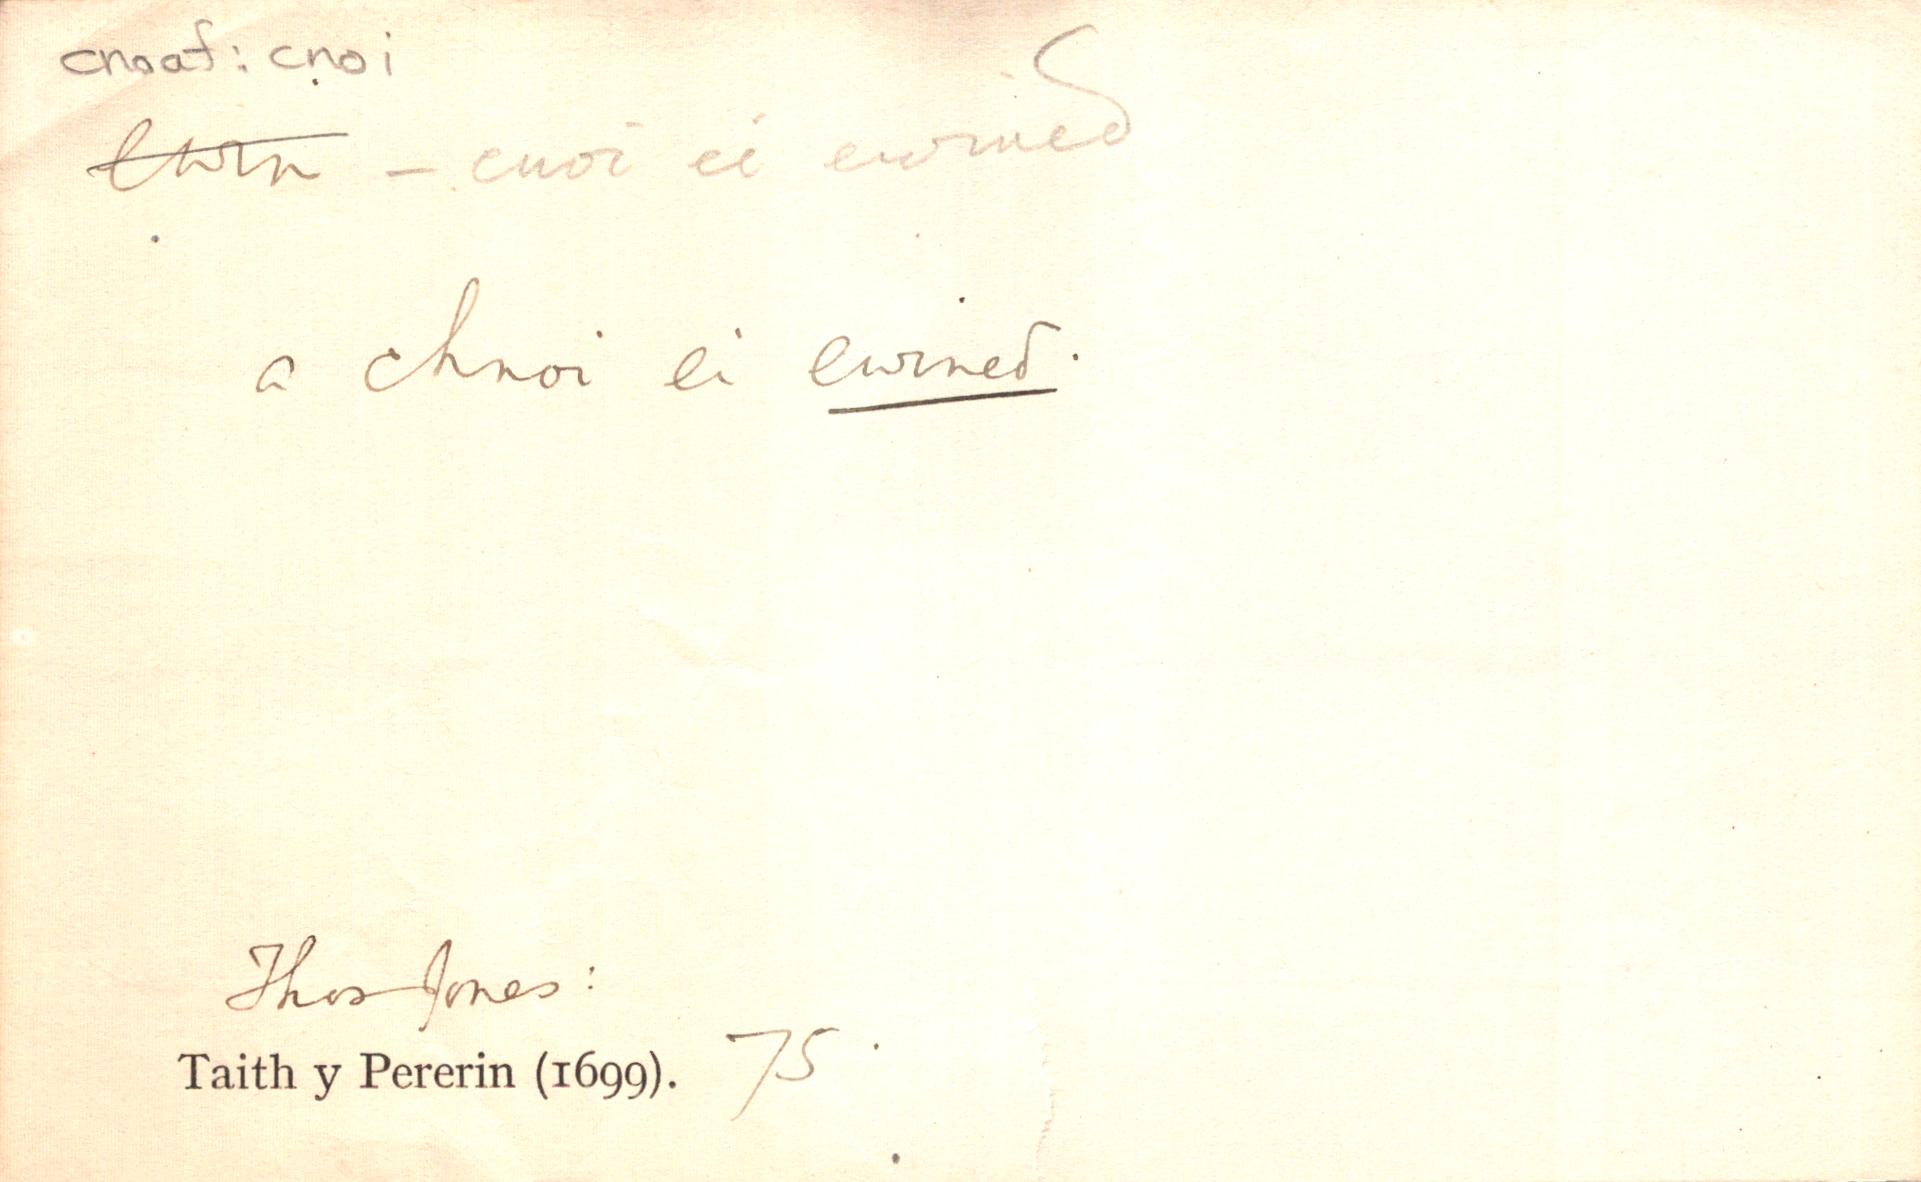 cnoaf: cnoi
ewin - cnoi ei ewineδ
a chnoi ei ewineδ.
Thos Jones:
Taith y Pererin (1699). 75.